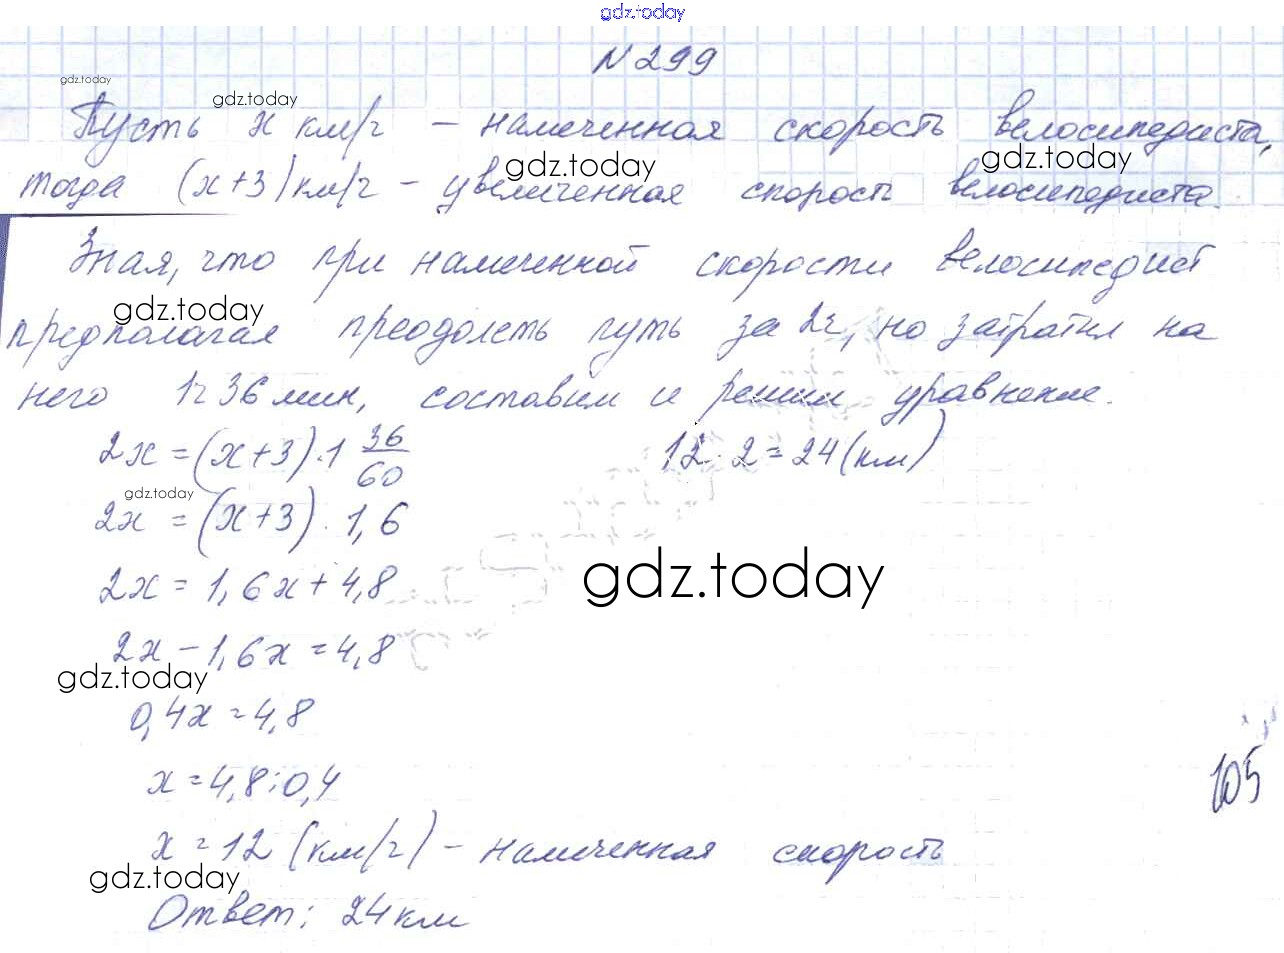 gdz.today
№299
gdz.today
gdz.today
Пусть x км/ч - намеченная скорость велосипедиста,
gdz.today gdz.today
тогда (x+3) км/ч - увеличенная скорость велосипедиста.
Зная, что при намеченной скорости велосипедист
gdz.today
предполагал преодолеть путь за 2ч, но затратил на
него 1ч 36 мин, составим и решим уравнение.
2x = (x+3)·1 36/60 12·2=24(км)
gdz.today
2x = (x+3)·1,6
2x = 1,6x+4,8
gdz.today
2x-1,6x=4,8
gdz.today
0,4x=4,8
x=4,8:0,4
105
x=12 (км/ч) - намеченная скорость
gdz.today
Ответ: 24 км